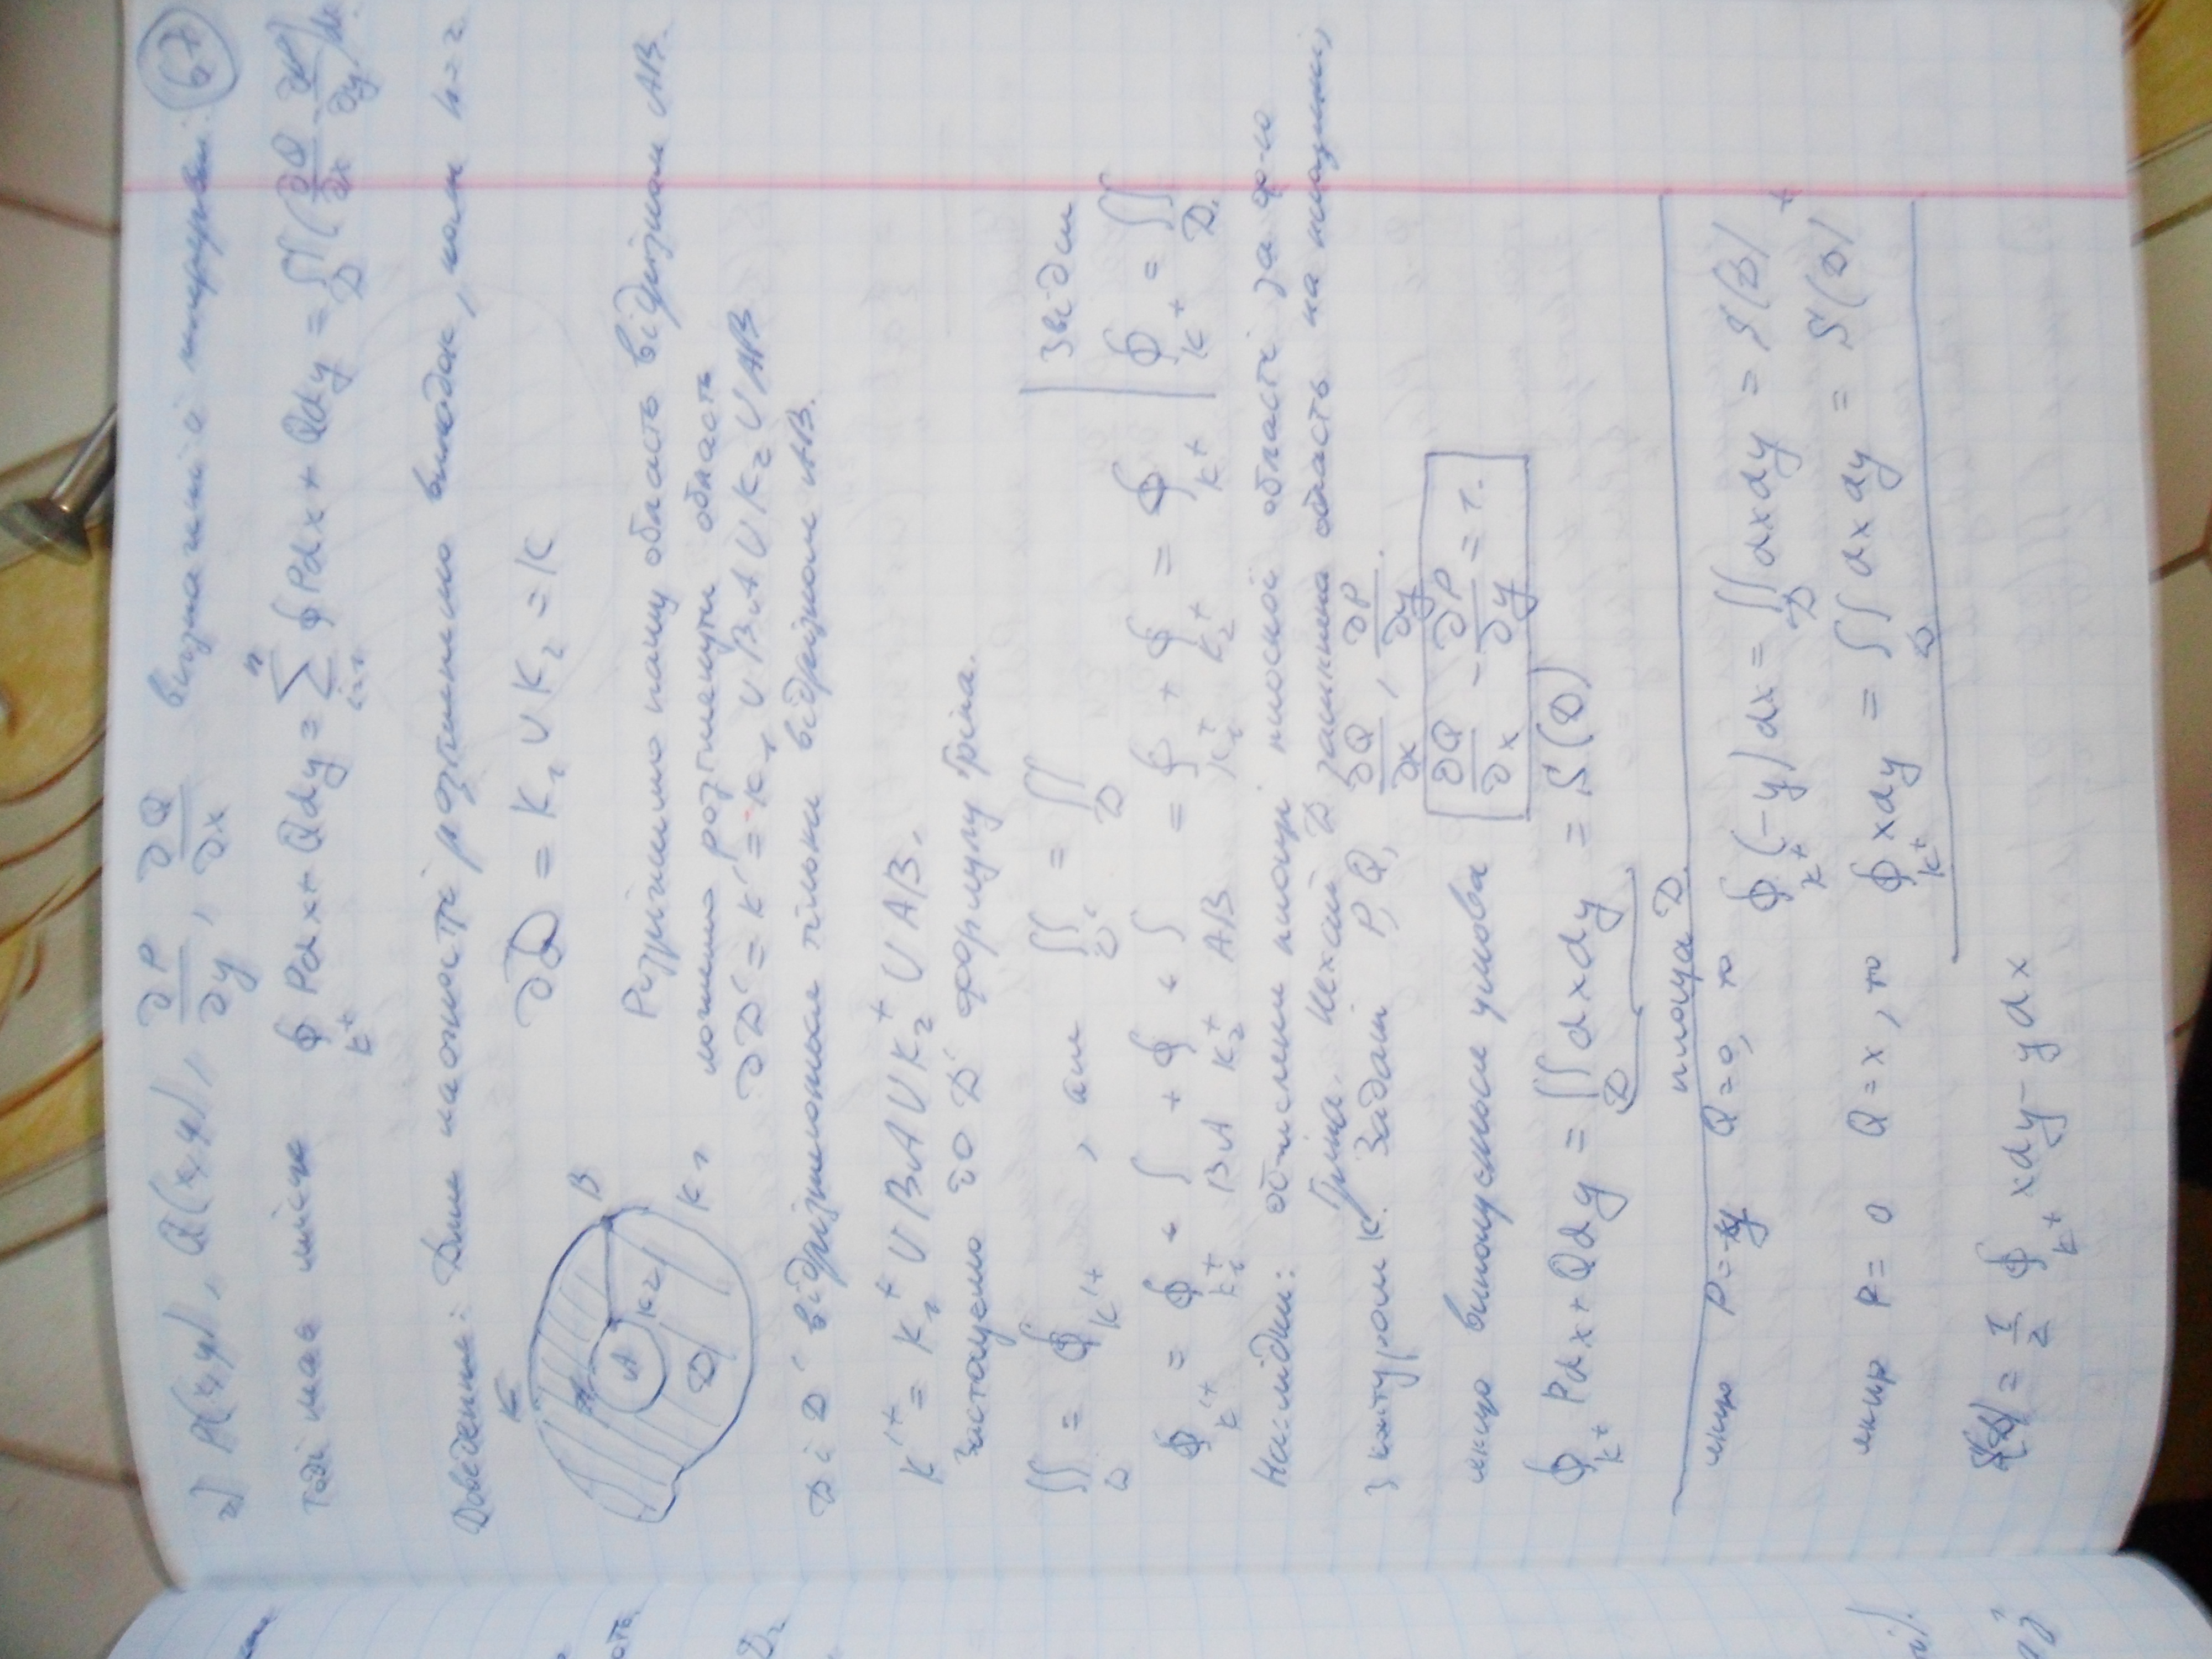 67
2) P(x,y), Q(x,y), ∂P/∂y, ∂Q/∂x визначені і неперервні.
Тоді має місце ∮_{K⁺} Pdx + Qdy = Σ_{i=1}^{n} ∮ Pdx + Qdy = ∬_D (∂Q/∂x - ∂P/∂y) dx.
Доведення: Для наочності розглянемо випадок, коли n=2
∂D = K₁ ∪ K₂ = K
K
B
A
K₂
D
K₁
Розріжемо нашу область відрізком AB.
можемо розглянути область
∂D' = K' = K₁ ∪ BA ∪ K₂ ∪ AB
D і D' відрізняються тільки відрізком AB.
K'⁺ = K₁⁺ ∪ BA ∪ K₂⁺ ∪ AB.
Застосуємо до D' формулу Гріна.
∬_{D'} = ∮_{K'⁺}, але ∬_{D'} = ∬_D
Звідси
∮_{K'⁺} = ∮_{K₁⁺} + ∫_{BA} + ∮_{K₂⁺} + ∫_{AB} = ∮_{K₁⁺} + ∮_{K₂⁺} = ∮_{K⁺}
∮_{K⁺} = ∬_D.
Наслідки: обчислення площі плоскої області за ф-ю
Гріна. Нехай D замкнена область на площині,
з контуром K. Задані P, Q, ∂Q/∂x, ∂P/∂y.
якщо виконується умова ∂Q/∂x - ∂P/∂y = 1.
∮_{K⁺} Pdx + Qdy = ∬_D dxdy = S(D)
площа D.
якщо P = -y Q = 0, то ∮_{K⁺} (-y)dx = ∬_D dxdy = S(D) +
якщо P = 0 Q = x, то ∮_{K⁺} xdy = ∬_D dxdy = S(D)
S(D) = 1/2 ∮_{K⁺} xdy - ydx
D₂